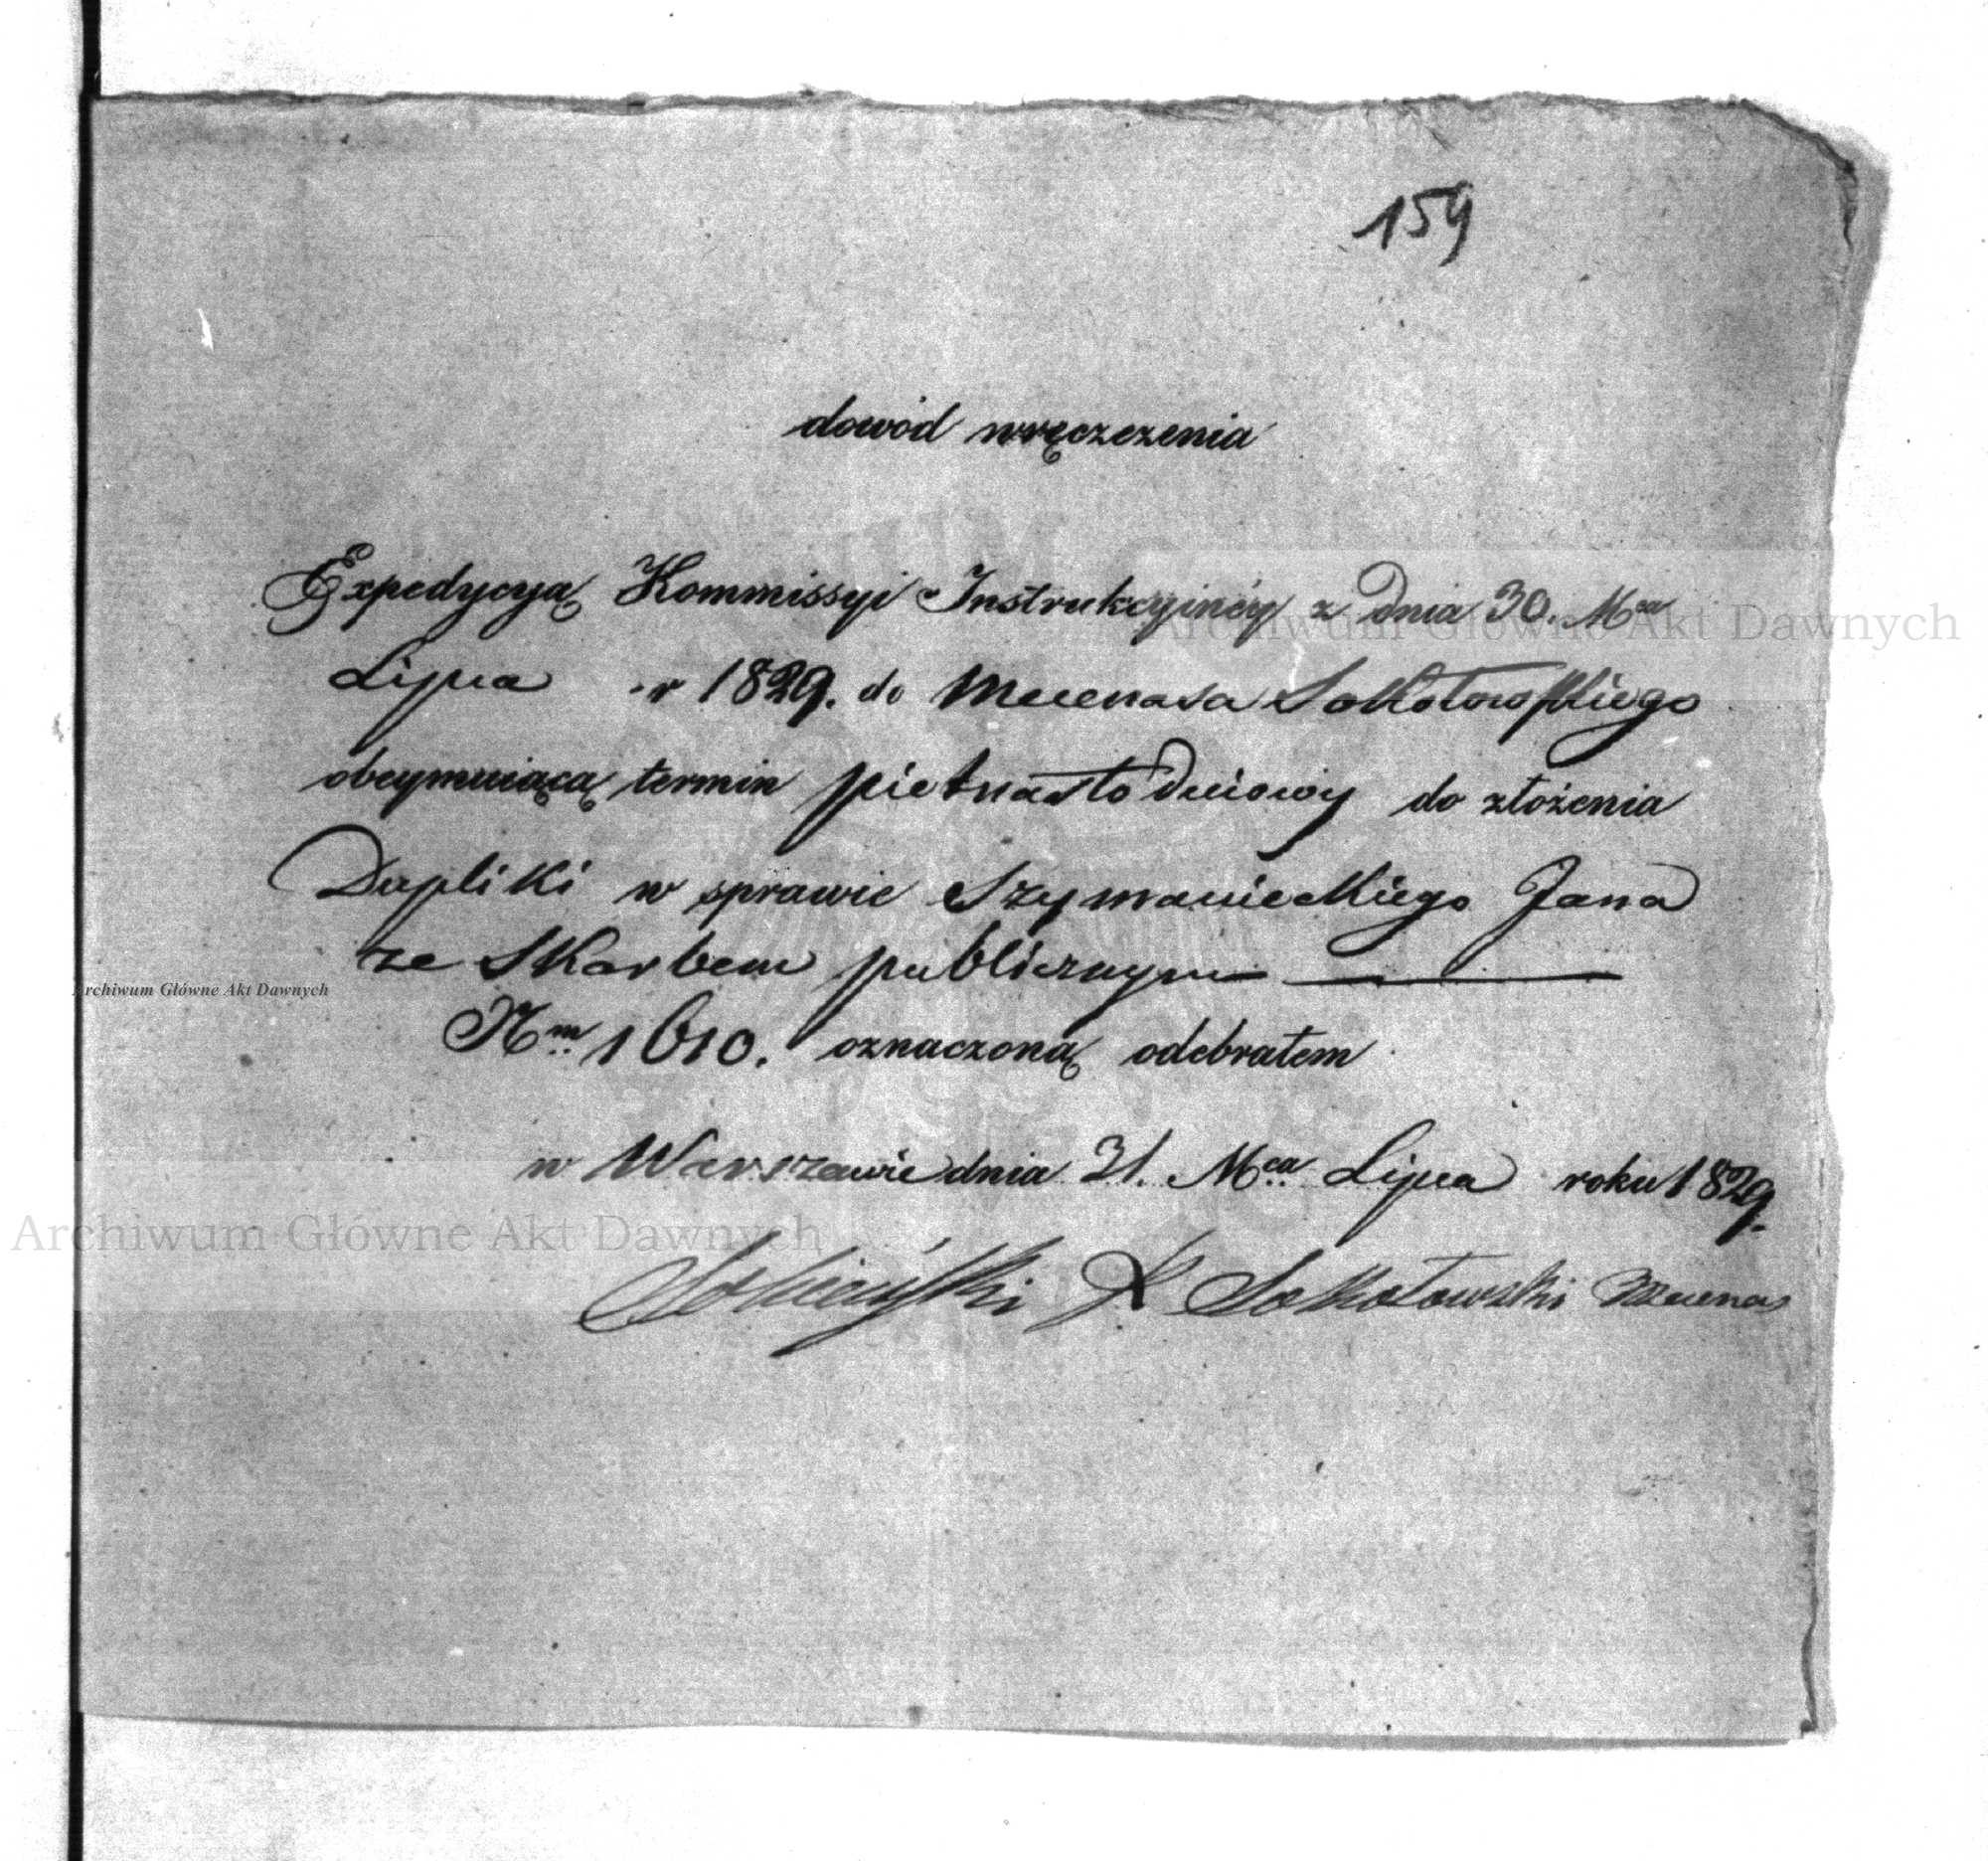 159
dowód wręczenia
Expedycyą Kommissyi Instrukcyiney z dnia 30. Mca
Lipca r 1829. do Mecenasa Sokołowskiego
obeymuiącą termin pietnasto dniowy do złożenia
Dupliki w sprawie Szymanieckiego Jana
ze Skarbem publicznym
Nm 1610. oznaczoną odebrałem
w Warszawie dnia 31. Mca Lipca roku 1829.
Sokołowski Mecenas
Archiwum Główne Akt Dawnych
Archiwum Główne Akt Dawnych
Archiwum Główne Akt Dawnych